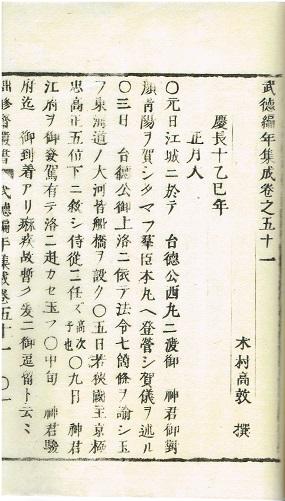 武德編年集成卷之五十一
木村高敦 撰
慶長十乙巳年
正月大
〇元日江城ニ於テ 台德公西丸ニ渡御 神君御對
顔靑陽ヲ賀シタマフ羣臣本丸ヘ登營シ賀儀ヲ述ル
〇三日 台德公御上洛ニ依テ法令七箇條ヲ諭シ玉
フ東海道ノ大河皆船橋ヲ設ク〇五日若狹國主京極
忠高正五位下ニ敘シ侍從ニ任ズ高次ノ子也〇九日 神君
江府ヲ御發駕有テ洛ニ赴カセ玉フ〇中旬 神君駿
府迄 御到着アリ痳疾故暫ク爰ニ御逗留ト云ミ
武德編年集成卷五十一 〇一